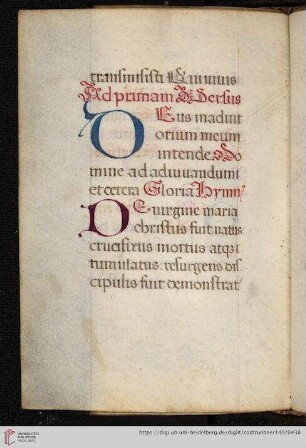 transmisisti Qui vivis
Ad primam Versus
Deus in adiut
orium meum
intende Do
mine ad adiuvandum
et cetera Gloria hymn'
De virgine maria
christus fuit natus
crucifixus mortuus atqz
tumulatus resurgens dis
cipulis fuit demonstrat
UNIVERSITÄTS-
BIBLIOTHEK
HEIDELBERG
https://digi.ub.uni-heidelberg.de/diglit/codtruebner149/0438